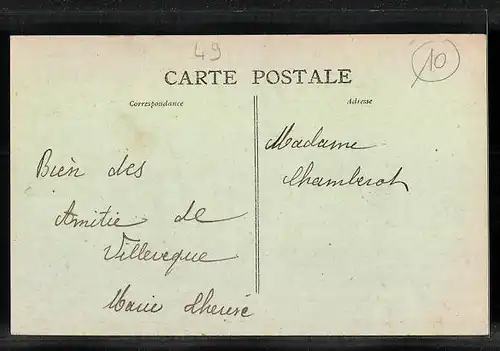 49
10
CARTE POSTALE
Correspondance
Adresse
Bien des
Amitie de
Villevêque
Marie Therese
Madame
Chamberot